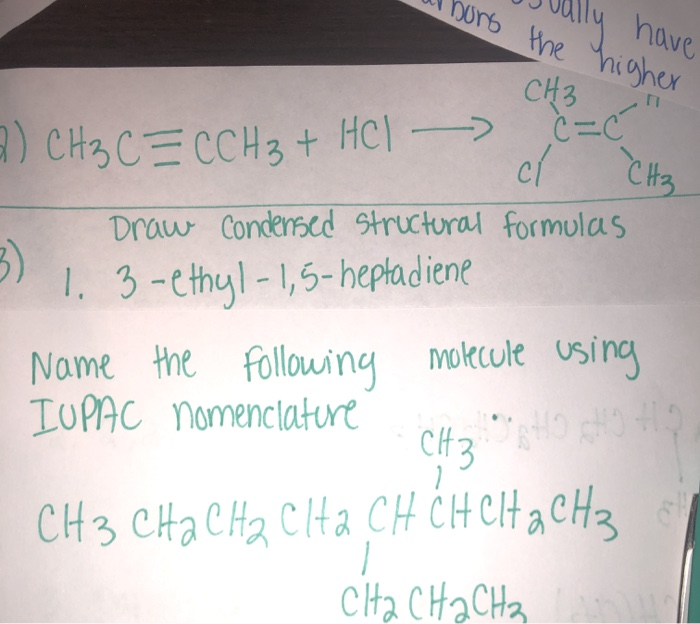 bons usually have
the higher
2) CH3C≡CCH3 + HCl → CH3 H
C=C
Cl CH3
Draw Condensed Structural formulas
3) 1. 3-ethyl-1,5-heptadiene
Name the following molecule using
IUPAC nomenclature
CH3
CH3 CH2 CH2 CH2 CH CH CH2 CH3
CH2 CH2 CH3